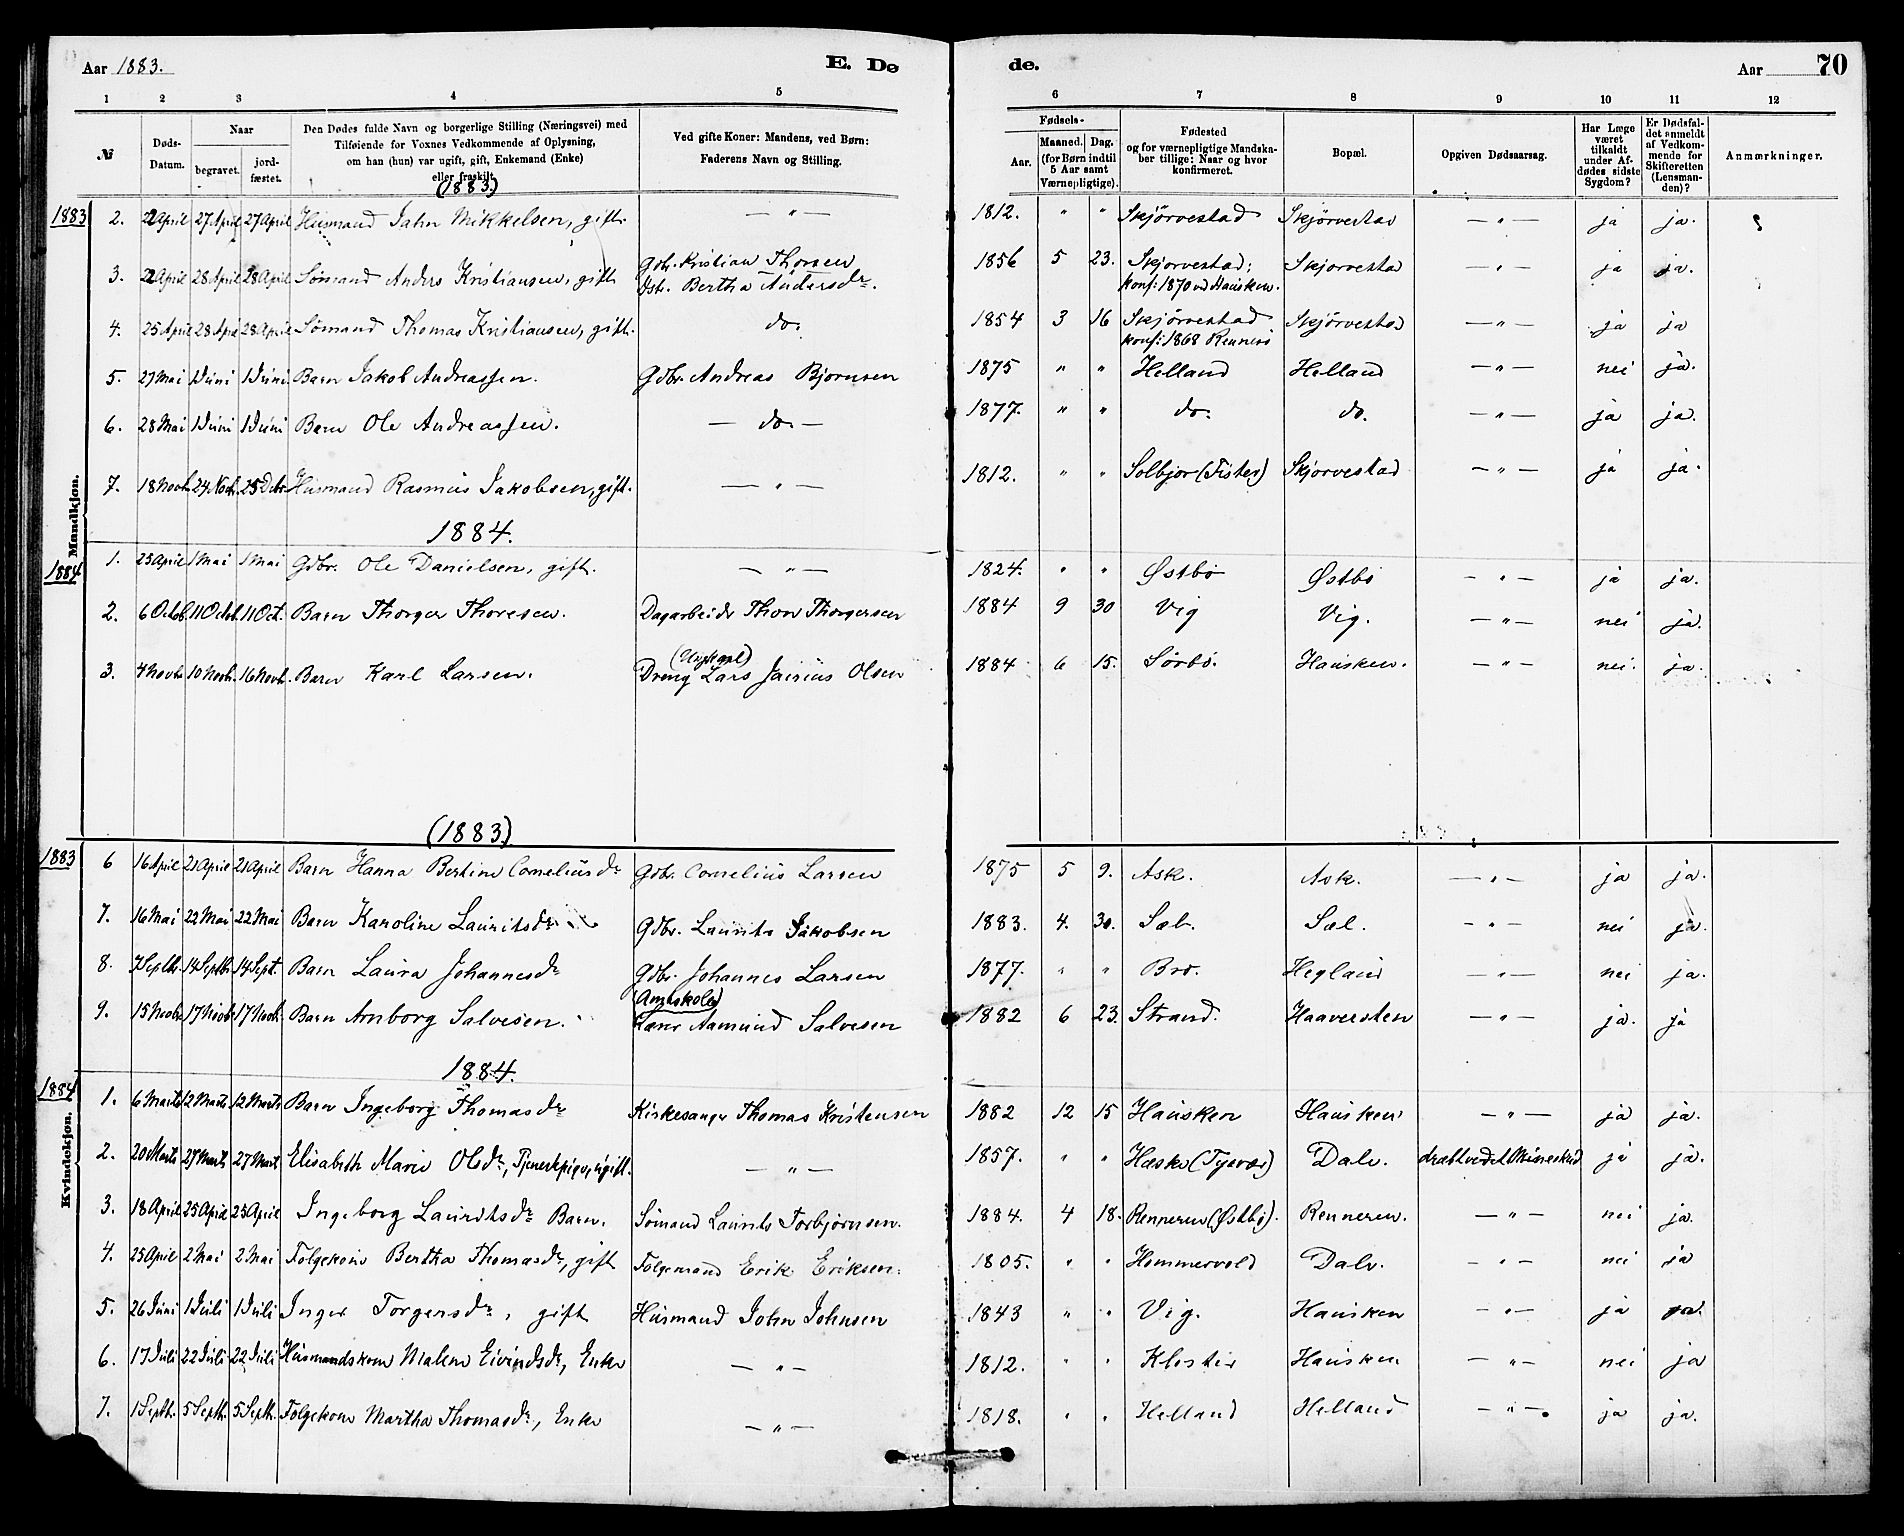 Aar 1883. E. Dø de. Aar 70
1 2 3 4 5 6 7 8 9 10 11 12
№ Døds-Datum. Naar begravet. jord-fæstet. Den Dødes fulde Navn og borgerlige Stilling (Næringsvei) med Tilføiende for Voxnes Vedkommende af Oplysning, om han (hun) var ugift, gift, Enkemand (Enke) eller fraskilt. Ved gifte Koner: Mandens, ved Børn: Faderens Navn og Stilling. Fødsels- Aar. Maaned. Dag. (for Børn indtil 5 Aar samt Værnepligtige). Fødested og for værnepligtige Mandskaber tillige: Naar og hvor konfirmeret. Bopæl. Opgiven Dødsaarsag. Har Læge været tilkaldt under Afdødes sidste Sygdom? Er Dødsfaldet anmeldt af Vedkommende for Skifteretten (Lensmanden)? Anmærkninger.
(1883)
Mandkjøn.
1883 2. 22 April 27 April 27 April Husmand Jahn Mikkelsen, gift. — " — 1812. " " Skjørvestad Skjørvestad — " — ja ja.
3. 22 April 28 April 28 April Sømand Anders Kristiansen, gift Gbr. Kristian Thorsen 1856 5 23. Skjorvestad; Skjorvestad — " — ja ja.
Bertha Andersdr. konf: 1870 ved Hausken.
4. 25 April 28 April 28 April Sømand Thomas Kristiansen, gift. do. 1854 3 16 Skjørvestad Skjørvestad — " — ja ja
konf: 1868 Rennesø
5. 27 Mai 1 Juni 1 Juni Barn Jakob Andreassen. Gdbr. Andreas Bjornsen 1875 " " Helland Helland — " — nei ja.
6. 28 Mai 1 Juni 1 Juni Barn Ole Andreassen. — do. — 1877. " " do. do. — " — ja ja.
7. 18 Novb. 24 Nov. 25 Dcbr. Husmand Rasmus Jakobsen, gift. — " — 1812. " " Solbjor (Fister) Skjorvestad — " — ja ja.
1884.
1884 1. 25 April 1 Mai 1 Mai Gdbr. Ole Danielsen, gift. — " — 1824. " " Østbø Østbø — " — ja ja.
2. 6 Octob. 11 Octob. 11 Oct. Barn Thorger Thoresen. Dagarbeider Thore Thorgersen 1884 9 30 Vig Vig. — " — nei ja.
(Ungkarl)
3. 4 Novb. 10 Novb. 16 Novb. Barn Karl Larsen. Dreng Lars Jairius Olsen 1884 6 15. Sørbø. Hausken. — " — nei. ja.
(1883)
Kvindekjøn.
1883 6 16 April 21 April 21 April Barn Hanna Bertine Corneliusdr. Gdbr. Cornelius Larsen 1875 5 9. Ask. Ask. — " — ja ja.
7. 16 Mai 22 Mai 22 Mai Barn Karoline Lauritsdr. Gdbr. Laurits Jakobsen 1883. 4. 30. Sæl. Sæl. — " — nei ja.
8. 7 Septb. 14 Septb. 14 Sept. Barn Laura Johannesdr Gdbr. Johannes Larsen 1877. " " Bro. Hegland — " — nei ja.
(Amtskole)
9. 15 Novb. 17 Novb. 17 Novb. Barn Arnborg Salvesen. Lærer Aamund Salvesen 1882 6 23. Strand. Haaversten — " — ja. ja
1884.
1884 1. 6 Marts 12 Marts 12 Marts Barn Ingeborg Thomasdr Kirkesanger Thomas Kristensen 1882 12 15 Hausken Hausken — " — ja ja.
2. 20 Marts 27 Marts 27 Mart. Elisabeth Marie Olsdr, Tjenestepige, ugift. — " — 1857. " " Hæske (Tysvær) Dale. dræbt ved et Mineskud ja ja.
3. 18 April 25 April 25 April Ingeborg Lauritsdr. Barn. Sømand Laurits Torbjørnsen. 1884. 4 18. Renneren (Østbø). Renneren. — " — nei ja.
4. 25 April 2 Mai 2 Mai Folgekone Bertha Thomasdr, gift Folgemand Erik Eriksen. 1805. " " Hommervold Dale. — " — nei ja
5. 26 Juni 1 Juli 1 Juli Inger Torgersdr, gift Husmand John Johnsen 1843 " " Vig. Hausken — " — ja ja.
6. 17 Juli 22 Juli 22 Juli Husmandskone Malene Eivindsdr, Enke — " — 1812. " " Kloster Hausken — " — nei ja
7. 1 Septb. 5 Septb. 5 Septb. Folgekone Martha Thomasdr, Enke — " — 1818. " " Helland Helland — " — ja ja.